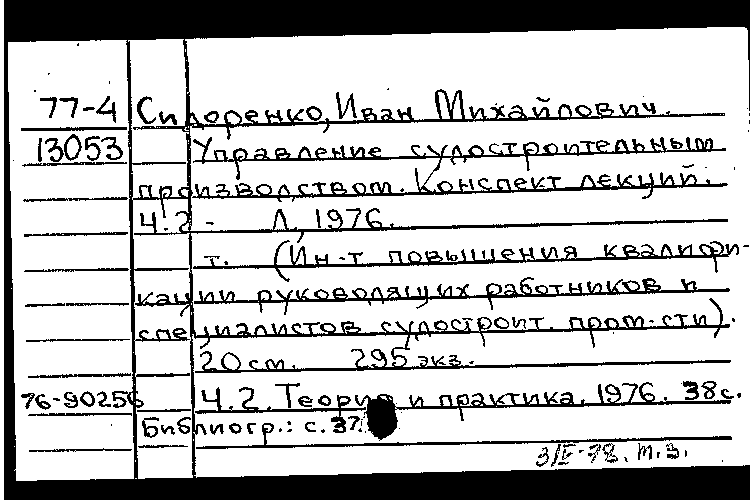 77-4 Сидоренко, Иван Михайлович.
13053 Управление судостроительным
производством. Конспект лекций.
Ч.2 - Л., 1976.
т. (Ин-т повышения квалифи-
кации руководящих работников и
специалистов судостроит. пром-сти).
20 см. 295 экз.
76-90256 Ч.2. Теория и практика. 1976. 38 с.
Библиогр.: с. 37
т.з.